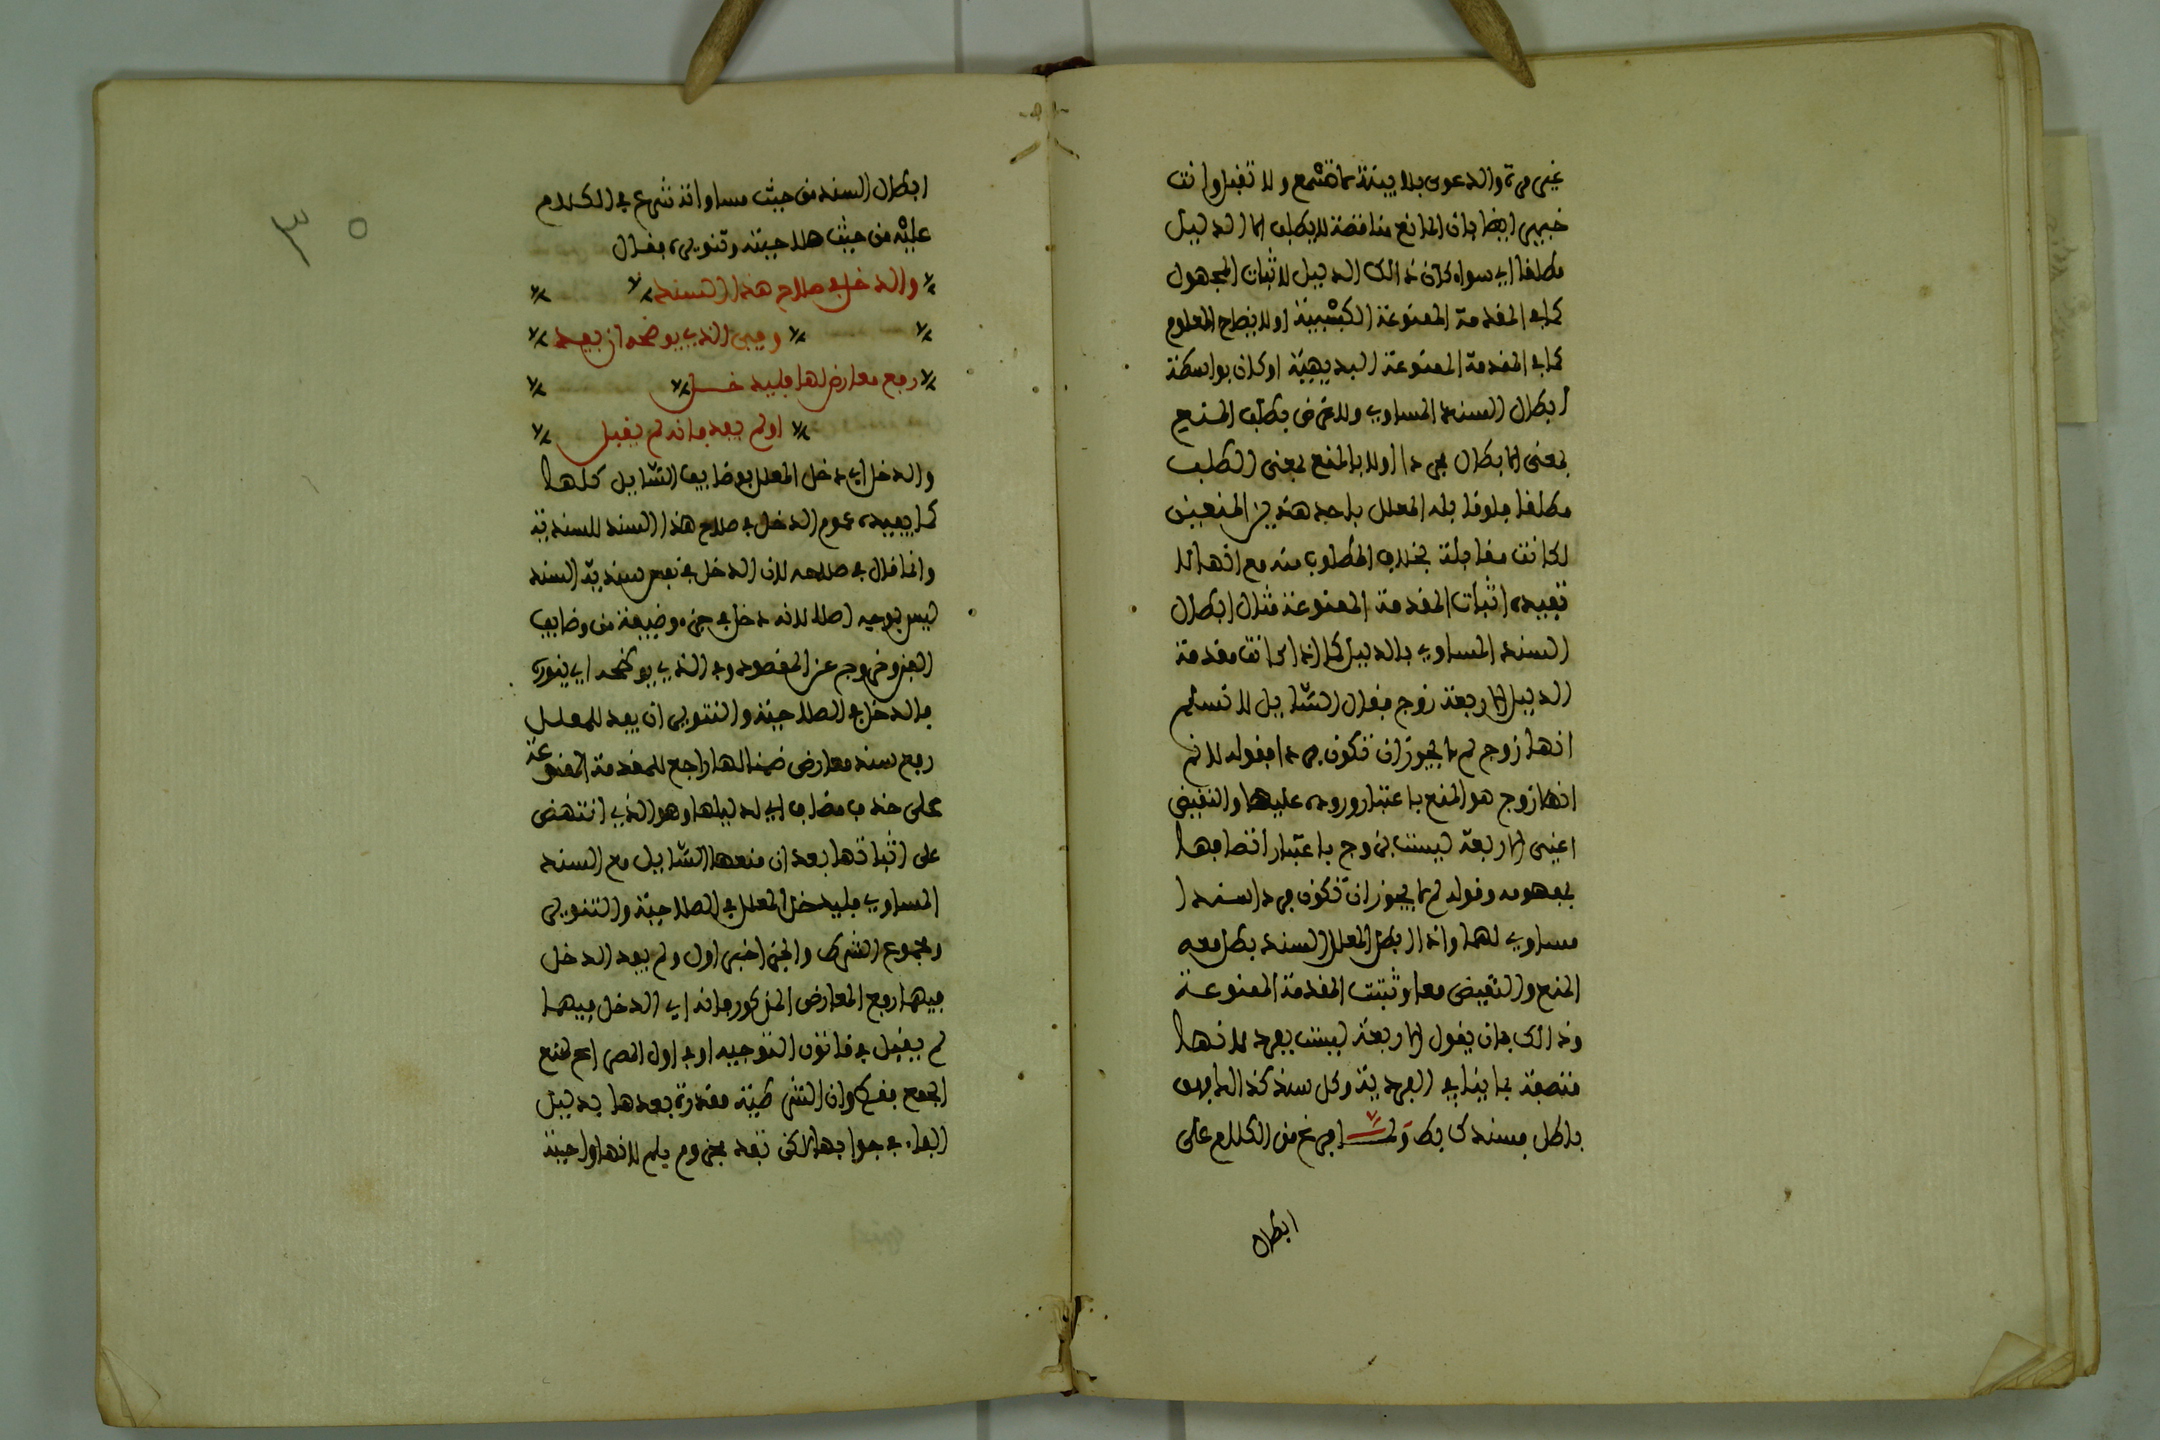 غير مرة والدعوى بلا بينة ما تسمع ولا تقبل وانت
خبير ايضا بان المانع مناقضة لا يطلب الا الدليل
مطلقا اي سواء كان ذالك الدليل لاثبات المجهول
كما في المقدمة الممنوعة الكسبية او لايضاح المعلوم
كما في المقدمة الممنوعة البديهية او كان بواسطة
ابطال السند المساوي ولا غرض بطلب المنع
بمعنى الابطال فردا ولا بالمنع بمعنى الطلب
مطلقا فلو قابله المعلل باحد هذين المنعين
لكانت مقابلة بخلاف المطلوب منه مع انها لا
تفيده اثبات المقدمة الممنوعة مثال ابطال
السند المساوي بالدليل كما اذا كانت مقدمة
الدليل الاربعة زوج فقال السايل لا نسلم
انها زوج لم لا يجوز ان تكون فردا فقوله لا نم
انها زوج هو المنع باعتبار وروده عليها والنقيض
اعني الاربعة ليست بزوج باعتبار اتصافها
بمفهومه وقوله لم لا يجوز ان تكون فردا سندا
مساوي لهما واذا ابطل المعلل السند بطل معه
المنع والنقيض معا وثبتت المقدمة الممنوعة
وذالك بان يقول الاربعة ليست بفرد لانها
منتصفة بما ينافي الفردية وكل سند كذا لا فهو
باطل فسندك بط ولما فرغ من الكلام على
ابطال
ابطال السند من حيث مساواته شرع في الكلام
عليه من حيث صلاحيته وتنويره فقال
والدخل في صلاح هذا السند
وفي الذي يوضحه ان يفد
رفع معارض لها فليدخل
او لم يفد فانه لم يقبل
والدخل اي دخل المعلل بوظايف السايل كلها
كما يفيده عموم الدخل في صلاح هذا السند للسندية
وانما قال في صلاحه لان الدخل في نفس سندية السند
ليس بوجيه اصلا لانه دخل في جزء وضيفة من وضايف
الغير وخروج عن المقصود وفي الذي يوضحه اي ينوره
فالدخل في الصلاحية والتنوير ان يفد للمعلل
رفع سند معارض ضمنا لها راجع للمقدمة الممنوعة
على حذف مضاف اي لدليلها وهو الذي انتهض
على اثباتها بعد ان منعها السايل مع السند
المساوي فليدخل المعلل في الصلاحية والتنوير
ومجموع الشرط والجزاء خبر اول ولم يفد الدخل
فيها رفع المعارض المذكور فانه اي الدخل فيهما
لم يقبل في قانون التوجيه او في اول المصراع لمنع
الجمع فقط وان الشرطية مقدرة بعدها بدليل
الفاء في جوابها لاكن تفد مجزوم بلم لا انها واجبة
٣٥